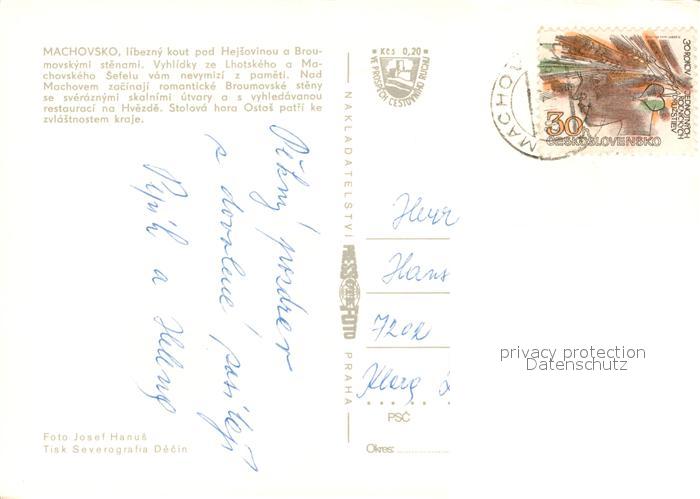 MACHOVSKO, líbezný kout pod Hejšovinou a Brou-
movskými stěnami. Vyhlídky ze Lhotského a Ma-
chovského Šefelu vám nevymizí z paměti. Nad
Machovem začínají romantické Broumovské stěny
se svéráznými skalními útvary a s vyhledávanou
restaurací na Hvězdě. Stolová hora Ostaš patří ke
zvláštnostem kraje.
Pěkný pozdrav
s dovolené posílají
Pepík a Helena
Foto Josef Hanuš
Tisk Severografia Děčín
Kčs 0,20
VE PROSPĚCH CESTOVNÍHO RUCHU
NAKLADATELSTVÍ
PRESSFOTO
PRAHA
MACHOV
30
ČESKOSLOVENSKO
30 ROKOV JEDNOTNÝCH ROĽNÍCKYCH DRUŽSTIEV
Herr
Hans
7202
PSČ
Okres:
privacy protection
Datenschutz